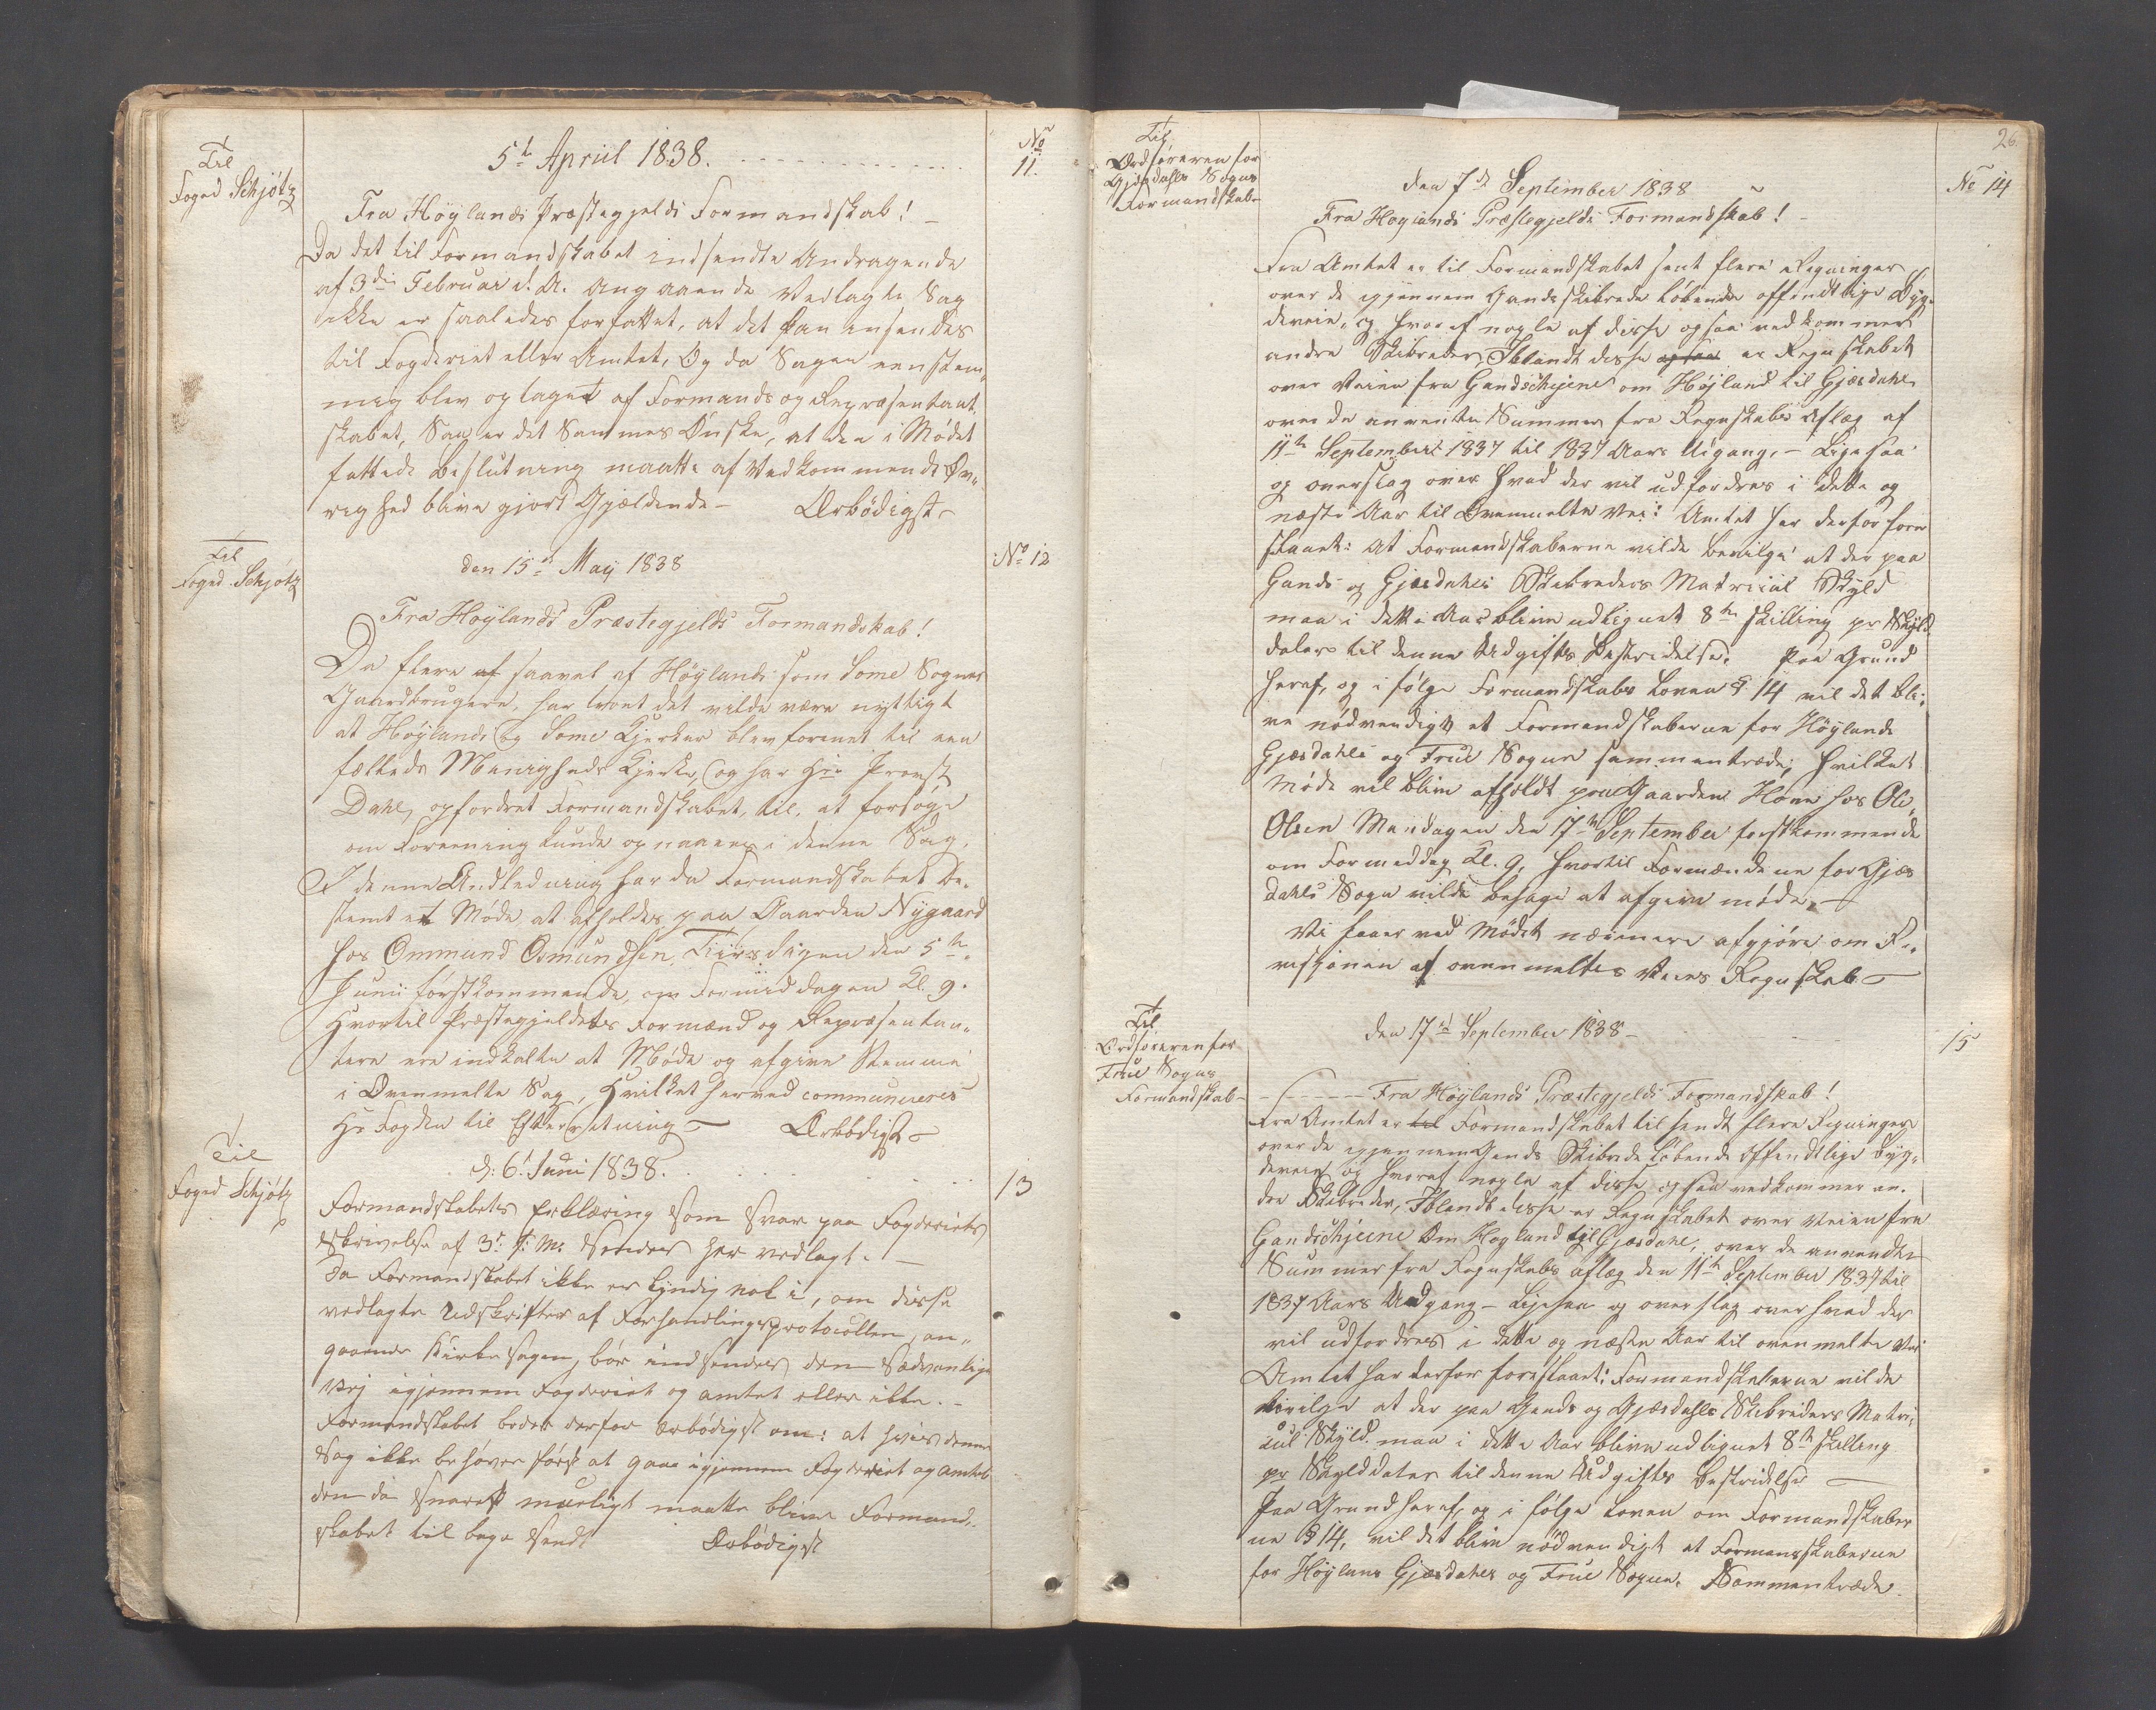 Til
Foged Schjötz
5te April 1838.
No
11.
Fra Höylands Præstegjelds Formandskab! -
Da det til Formandskabet indsendte Andragende
af 3die Februar d. A. angaaende Vedlagte Sag
ikke er saaledes forfattet, at det kan insendes
til Fogderiet eller Amtet, Og da Sagen eenstem„
mig blev optaget af Formands og Repræsentant„
skabet, Saa er det Sammes Önske, at den i Mödet
fattede Beslutning maatte af Vedkommende Öv„
righed blive gjort Gjældende - Ærbödigst
Til
Foged Schjötz
den 15de Maÿ 1838
No 12
Fra Höylands Præstegjelds Formandskab!
Da flere af saavel af Höylands som Some Sognes
Gaardbrugere, har troet det vilde være nyttigt
at Höylands og Some Kjerker blev forenet til een
fælleds Menigheds Kjerke, og har Hr. Provst
Dahl, opfordret Formandskabet, til, at forsöge
om Foreening kunde opnaaes i denne Sag,
I denne Andledning har da Formandskabet be„
stemt et Möde at afholdes paa Gaarden Nygaard
hos Ommund Osmundsen, Tiirsdagen den 5te
Junii förstkommende, om Formiddagen Kl. 9.
Hvortil Præstegjeldets Formænd og Repræsentan„
tere ere indkalte at Möde og afgive Stemme
i Ovenmelte Sag, Hvilket herved communiceres
Hr Fogden til Efterretning - Ærbödigst -
Til
Foged Schjötz
d. 6. Juni 1838.
13
Formandskabets Erklæring som Svar paa Fogderiets
Skrivelse af 3. f. M. Sendes her vedlagt. -
Da Formandskabet ikke er kyndig nok i, om disse
vedlagte Udskrifter af Forhandlingsprotocollen, an„
gaaende Kirke sagen, bör indsendes den Sædvanlige
Vej igjennem Fogderiet og Amtet eller ikke. -
Formandskabet beder derfor ærbödigst om: at hvis denne
Sag ikke behöver först at gaae igjennem Fogderiet og Amtet
den da snarest mueligt maatte blive Formand„
skabet til bage Sendt Ærbödigst
26
Til
Ordföreren for
Gjesdahls Sogns
Formandskab -
den 7de September 1838
No 14
Fra Hoylands Præstegjelds Formandskab! -
Fra Amtet er til Formandskabet sent flere Regninger
over de igjennem Gands skibrede löbende offendtlige Byg„
deveie, og hvoraf nogle af disse ogsaa vedkommer
andre Skibreder, Iblandt disse ogsaa er Regnskabet
over Veien fra Gandschjene om Höjland til Gjesdahl
over de anvendte Summer fra Regnskabs Aflæg af
11te September 1837 til 1837 Aars Udgang. - Ligesaa
og overslag over hvad der vil udfordres i dette og
næste Aar til Ovenmelte Vei: Amtet har derfor fore
slaaet: At Formandskaberne vilde bevilge at der paa
Gands og Gjesdahls Skibreders Matricul Skyld
maa i dette Aar blive udlignet 8te skilling pr Skyld
daler til denne Udgifts Bestridelse. Paa Grund
heraf, og i fölge Formandskabs Loven § 14 vil det bli„
ve nödvendigt at Formandskaberne for Höylands
Gjesdahls og Frue Sogne sammentræde, hvilket
Möde vil blive afholdt paa Gaarden Hove hos Ole
Olsen Mandagen den 17de September förstkommende
om Formeddag Kl. 9, hvortil Formændene for Gjes
dahls Sogn vilde behage at afgive möde, -
Vi faaer ved Mödet nærmere afgjöre om Re„
visjonen af ovenmeltes Veies Regnskab -
Til
Ordföreren for
Frue Sogns
Formandskab -
den 17de September 1838 -
15
Fra Höylands Præstegjelds Formandskab!
Fra Amtet er til Formandskabet til sendt flere Regninger
over de igjennem Gands Skibrede löbende offendtlige Byg„
deveie, og hvoraf nogle af disse ogsaa vedkommer an„
dre Skibreder, Iblandt disse er Regnskabet over Veien fra
Gandschjene Om Hoyland til Gjesdahl, over de anvendte
Summer fra Regnskabs aflæg den 11te September 1837 til
1837 Aars Udgang - Ligesaa og overslag over hvad der
vil udfordres i dette og næste Aar til ovenmelte Vei
Amtet har derfor foreslaaet: Formandskaberne vilde
bevilge at der paa Gands og Gjesdahls Skibreders Matri„
cul Skyld. maa i dette Aar blive udlignet 8te skilling
pr Skylddaler til denne Udgifts bestridelse -
Paa Grund heraf, og i fölge Loven om Formandskaber
ne § 14, vil det blive nödvendigt at Formanskaberne
for Höylans Gjesdahls og Frue Sogne. Sammentræde